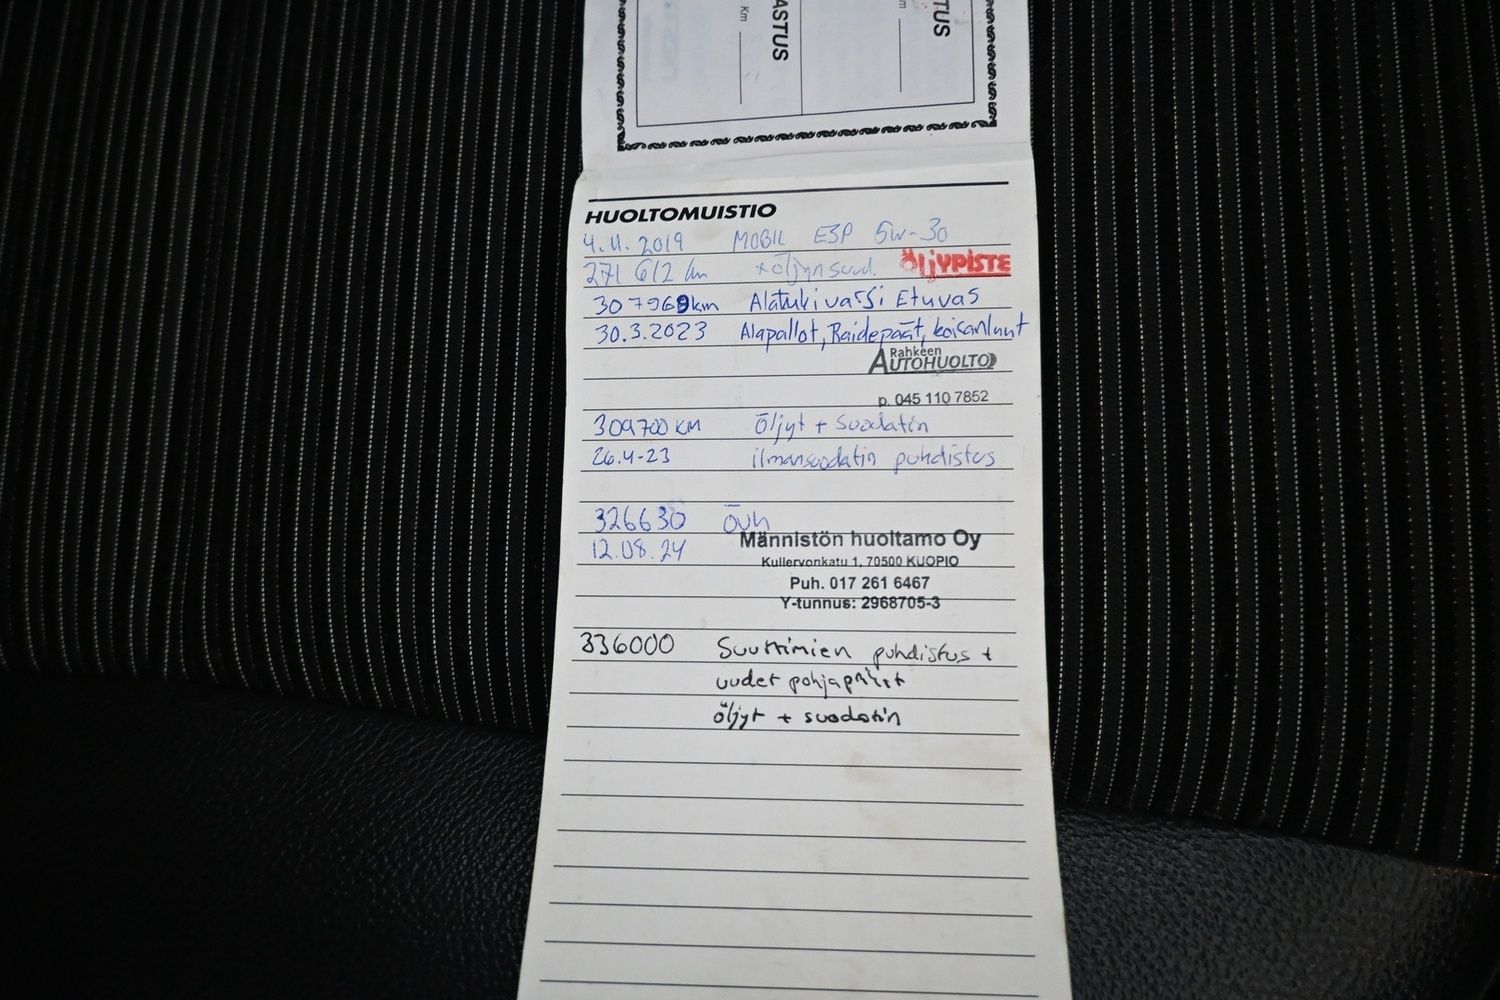 ASTUS
Km
TUS
Km
HUOLTOMUISTIO
4.11.2019 MOBIL ESP 5W-30
271 612 km + öljynsuod. ÖljYPISTE
307969km Alatukivarsi Etuvas
30.3.2023 Alapallot, Raidepäät, koiranluut
Rahkeen
AUTOHUOLTO
p. 045 110 7852
309700 KM Öljyt + Suodatin
26.4-23 ilmansuodatin puhdistus
326630 ÖVH
12.08.24
Männistön huoltamo Oy
Kullervonkatu 1, 70500 KUOPIO
Puh. 017 261 6467
Y-tunnus: 2968705-3
336000 Suuttimien puhdistus +
uudet pohjaprikat
öljyt + suodatin